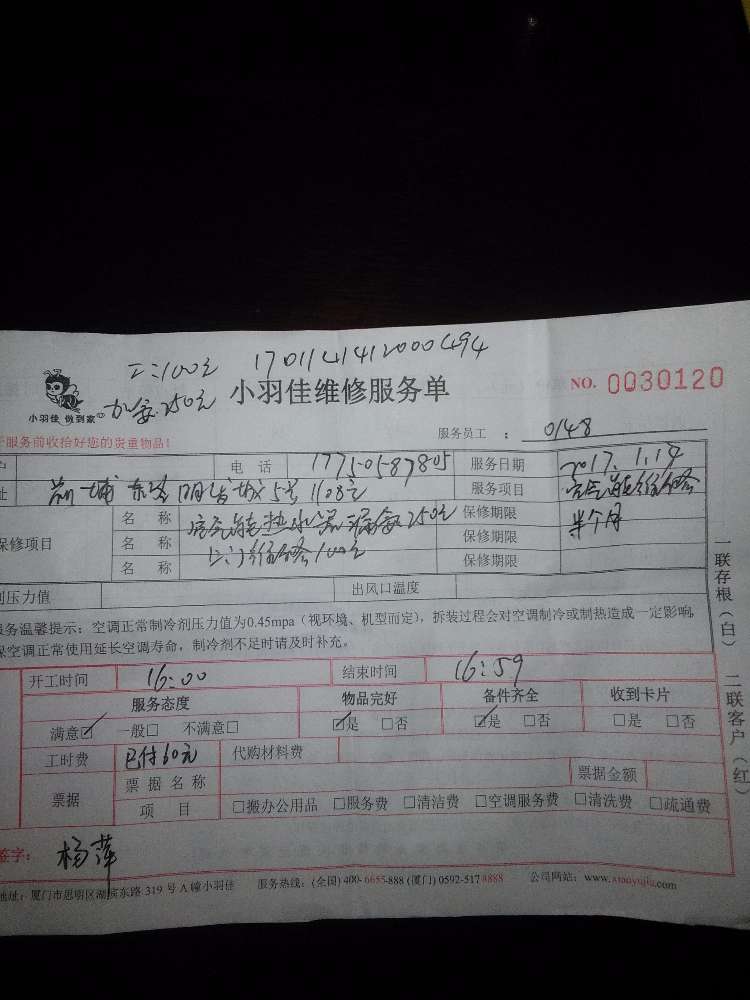 100元 17011414120000494
小羽佳 做到家 加 250元 小羽佳维修服务单 NO. 0030120
服务前收拾好您的贵重物品! 服务员工 : 0148
电 话 17750587805 服务日期 2017.1.14
东路 明发城5号1108室 服务项目 空气能维修
保修项目 名 称 空气能热水器漏氟250元 保修期限 半个月
名 称 上门维修100元 保修期限
名 称 保修期限
压力值 出风口温度
服务温馨提示：空调正常制冷剂压力值为0.45mpa（视环境、机型而定），拆装过程会对空调制冷或制热造成一定影响，
保空调正常使用延长空调寿命，制冷剂不足时请及时补充。
开工时间 16:00 结束时间 16:59
服务态度 物品完好 备件齐全 收到卡片
满意☑ 一般□ 不满意□ ☑是 □否 ☑是 □否 □是 □否
工时费 已付60元 代购材料费
票据 票据名称 票据金额
项 目 □搬办公用品 □服务费 □清洁费 □空调服务费 □清洗费 □疏通费
签字： 杨萍
地址：厦门市思明区湖滨东路 319 号 A 幢小羽佳 服务热线：(全国) 400-6655-888 (厦门) 0592-5174888 公司网站：www.xiaoyujia.com
一联存根（白） 二联客户（红）